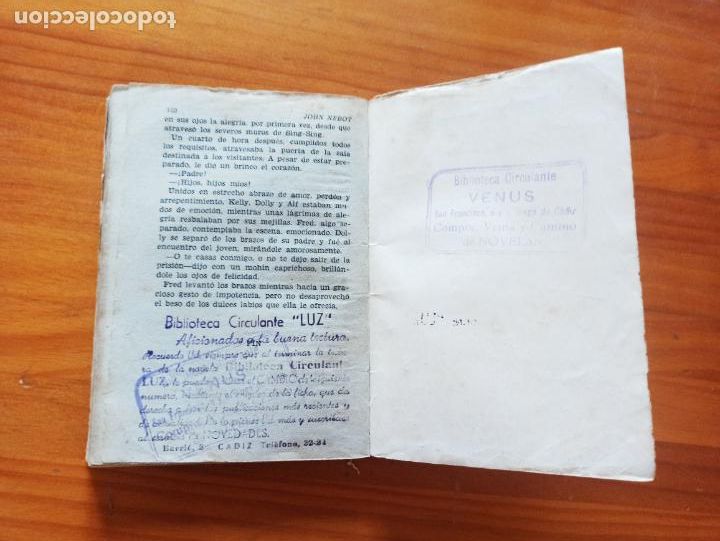 todocoleccion
JOHN NEBOT
en sus ojos la alegría, por primera vez, desde que
atravesó los severos muros de Sing-Sing.
Un cuarto de hora después, cumplidos todos
los requisitos, atravesaba la puerta de la sala
destinada a los visitantes. A pesar de estar pre-
parado, le dió un brinco el corazón.
—¡Padre!
—¡Hijos, hijos míos!
Unidos en estrecho abrazo de amor, perdón y
arrepentimiento, Kelly, Dolly y Alf estaban mu-
dos de emoción, mientras unas lágrimas de ale-
gría resbalaban por sus mejillas. Fred, algo se-
parado, contemplaba la escena, emocionado. Do-
lly se separó de los brazos de su padre y fué al
encuentro del joven, mirándole amorosamente.
—O te casas conmigo, o no te dejo salir de la
prisión—dijo con un mohín caprichoso, brillán-
dole los ojos de felicidad.
Fred levantó los brazos mientras hacía un gra-
cioso gesto de impotencia, pero no desaprovechó
el beso de los dulces labios que ella le ofrecía.
FIN
Biblioteca Circulante "LUZ"
Aficionados a la buena lectura.
Recuerde Ud. siempre que al terminar la
de la novela Biblioteca Circulante
LUZ, le puede CAMBIO
numero,
de la ficha, que da
derecho a publicaciones más recientes y
más y
NOVEDADES.
Barrié, 2 CADIZ Teléfono, 22-24
Biblioteca Circulante
VENUS
San Francisco, Cádiz
Compra, Venta y Cambio
de NOVELAS